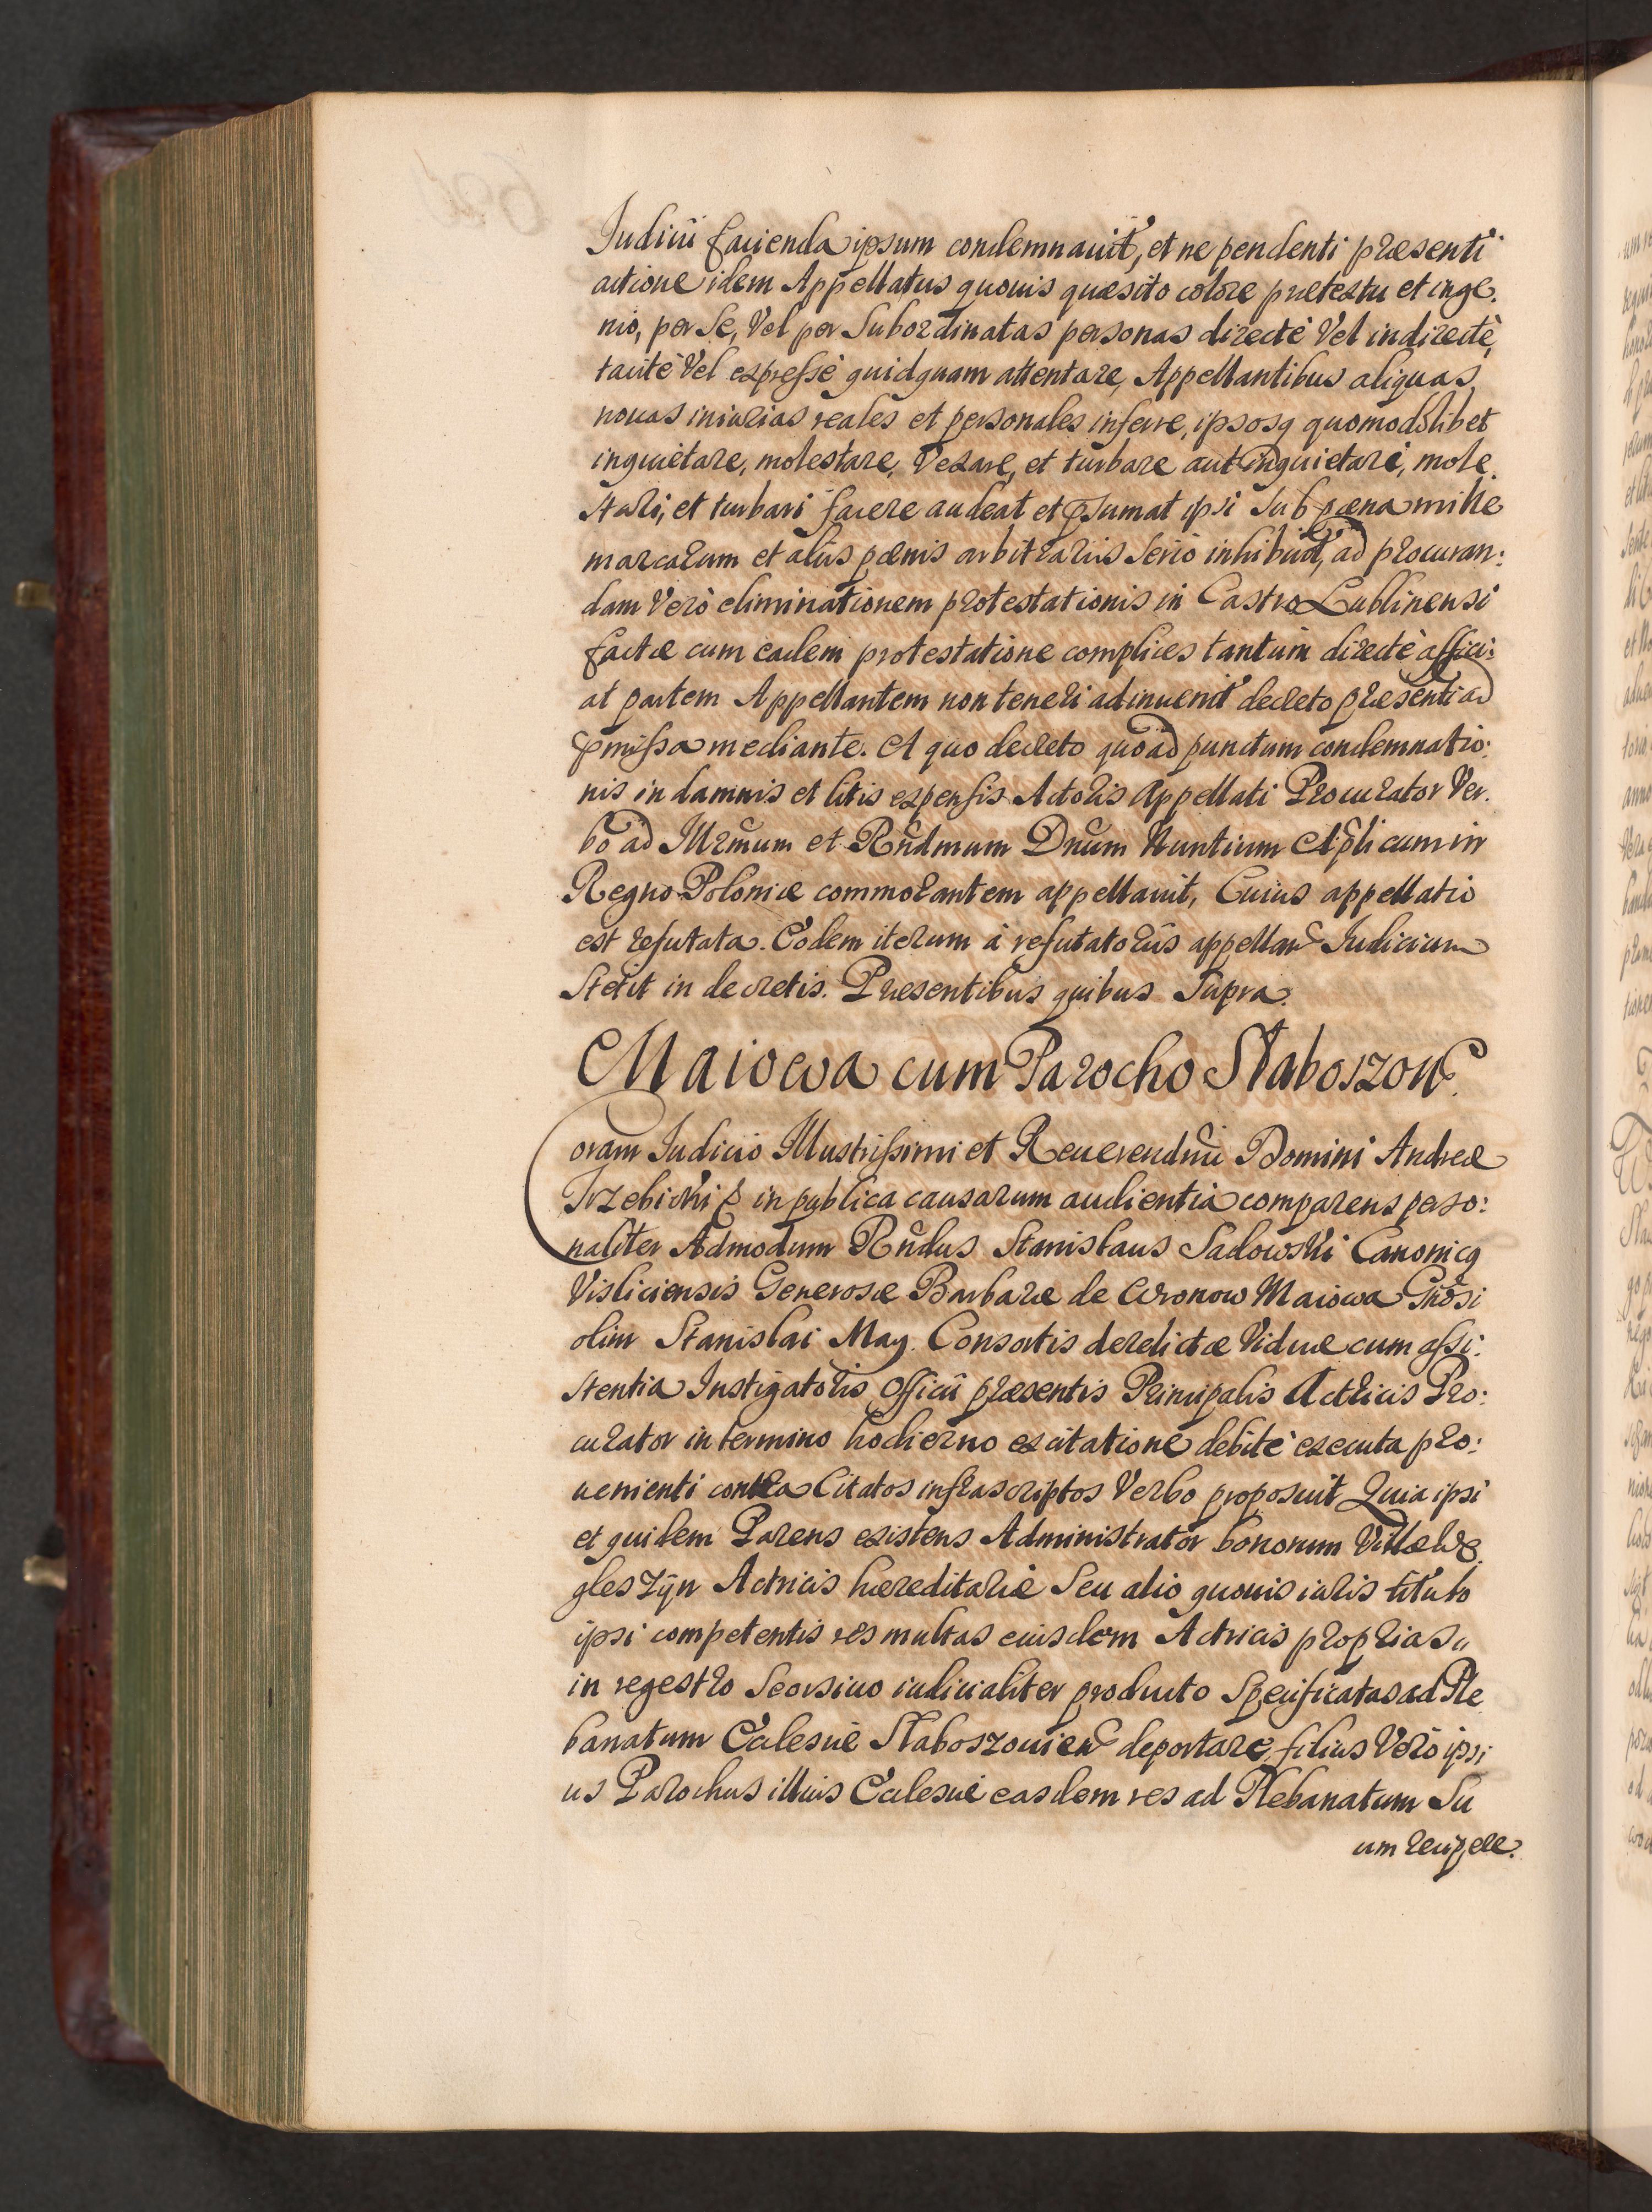 Judicii facienda ipsum condemnauit, et ne pendenti præsenti
actione idem Appellatus quouis quæsito colore prætextu et inge:
nio, per Se, Vel per Subordinatas personas directè Vel indirectè,
tacitè Vel expressè quidquam attentare, Appellantibus aliquas
nouas iniurias reales et personales inferre, ipsosq quomodolibet
inquietare, molestare, Vexare, et turbare aut inquietari, mole
stari, et turbari facere audeat et psumat ipsi sub pœna mille
marcarum et aliis pœnis arbitrariis Seriò inhibuit, ad procuran:
dam Verò eliminationem protestationis in Castro Lublinensi
factæ cum eadem protestatione complices tantùm directè affici:
at partem Appellantem non teneri adinuenit decreto præsenti ad
pmissa mediante. A quo decreto quoad punctum condemnatio:
nis in damnis et litis expensis Actoris Appellati Procurator Ver.
bo ad Illrmum et Rndmum Dnum Nuntium Aplicum in
Regno Poloniæ commorantem appellauit, Cuius appellatio
est refutata. Eodem iterum à refutatoriis appellan Judicium
Stetit in decretis. Præsentibus quibus Supra.
Maiowa cum Parocho Slaboszow
Coram Judicio Illustrissimi et Reuerendmi Domini Andreæ
Trzebicki & in publica causarum audientia comparens perso:
naliter Admodum Rndus Stanislaus Sadowski Canonicq
Visliciensis Generosæ Barbaræ de Wronow Maiowa Gnosi
olim Stanislai May. Consortis derelictæ Viduæ cum assi:
stentia Instigatoris Officii præsentis Principalis Actricis Pro:
curator in termino hodierno ex citatione debitè executa pro:
uenienti contra Citatos infrascriptos Verbo proposuit Quia ipsi
et quidem Parens existens Administrator bonorum Villæ We
gleszyn Actricis hæreditariè Seu alio quouis iuris titulo
ipsi competentis res multas eiusdem Actricis proprias
in regestro Seorsiuo iudicialiter producto Specificatas ad Ple
banatum Ecclesiæ Slaboszouien deportare, filius Verò ipsi
us Parochus illius Ecclesiæ easdem res ad Plebanatum Su
um recipere.